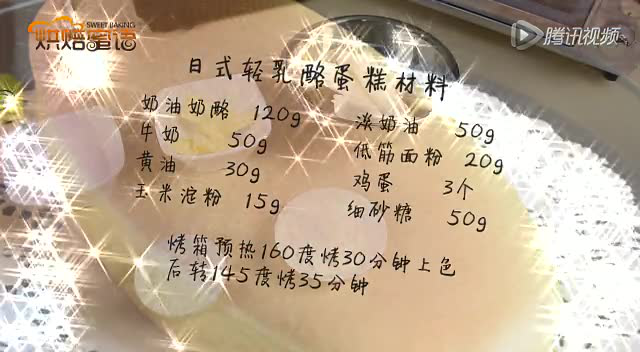 SWEET BAKING
烘焙蜜语
腾讯视频
日式轻乳酪蛋糕材料
奶油奶酪 120g 淡奶油 50g
牛奶 50g 低筋面粉 20g
黄油 30g 鸡蛋 3个
玉米淀粉 15g 细砂糖 50g
烤箱预热160度烤30分钟上色
后转145度烤35分钟